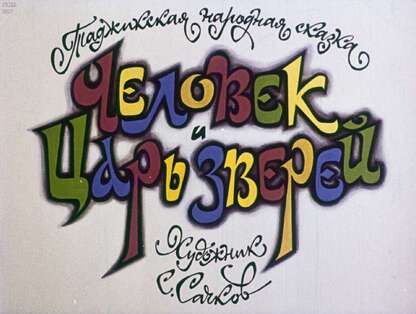 Таджикская народная сказка
Человек
и
Царь зверей
Художник
С. Сачков